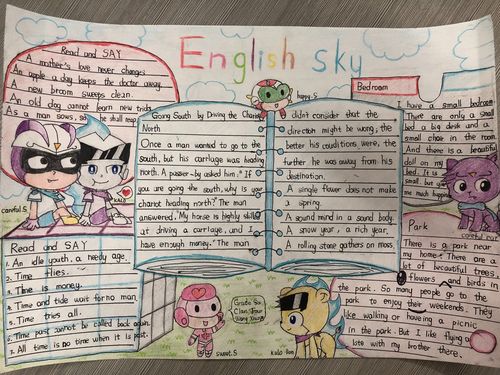 English sky
Read and SAY
A mother's love never changes
An apple a day keeps the doctor away.
A new broom sweeps clean.
An old dog cannot learn new tricks
As a man sows, so he shall reap
careful.S
kalo
happy.S
Going South by Driving the Chariot
North
Once a man wanted to go the
south, but his carriage was heading
north. A passer-by asked him." If
you are going the south, why is your
chariot heading north?" The man
answered. "My horse is highly skilled
at driving a carriage, and I
have enough money." The man
didn't consider that the
direction might be wong, the
better his conditions were, the
further he was away from his
destination.
A single flower does not make
a spring.
A sound mind in a sound body.
A snow year, a rich year.
A rolling stone gathers on moss.
Bedroom
I have a small bedroom
There are only a small
bed a big desk and a
small chair in the room
And there is a beautiful
doll on my
bed. It is
small, but
me much
Read and SAY
1. An idle youth, a needy age.
2. Time flies.
3. Time is money.
4. Time and tide wait for no man.
5. Time tries all.
6. Time past cannot be called back again.
7. All time is no time when it is past.
sweet.S
Grade Six
Class Four
kalo
Park
There is a park near
my home. There are a
lot of beautiful trees
flowers and birds in
the park. So many people go to the
park to enjoy their weekends. They
like walking or haveing a picnic
in the park. But I like flying a
kite with my brother there.